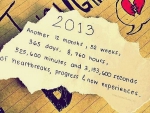 2013
Another 12 months, 52 weeks,
365 days, 8,760 hours,
525,600 minutes and 3,153,600 seconds
of heartbreaks, progress & new experiences.